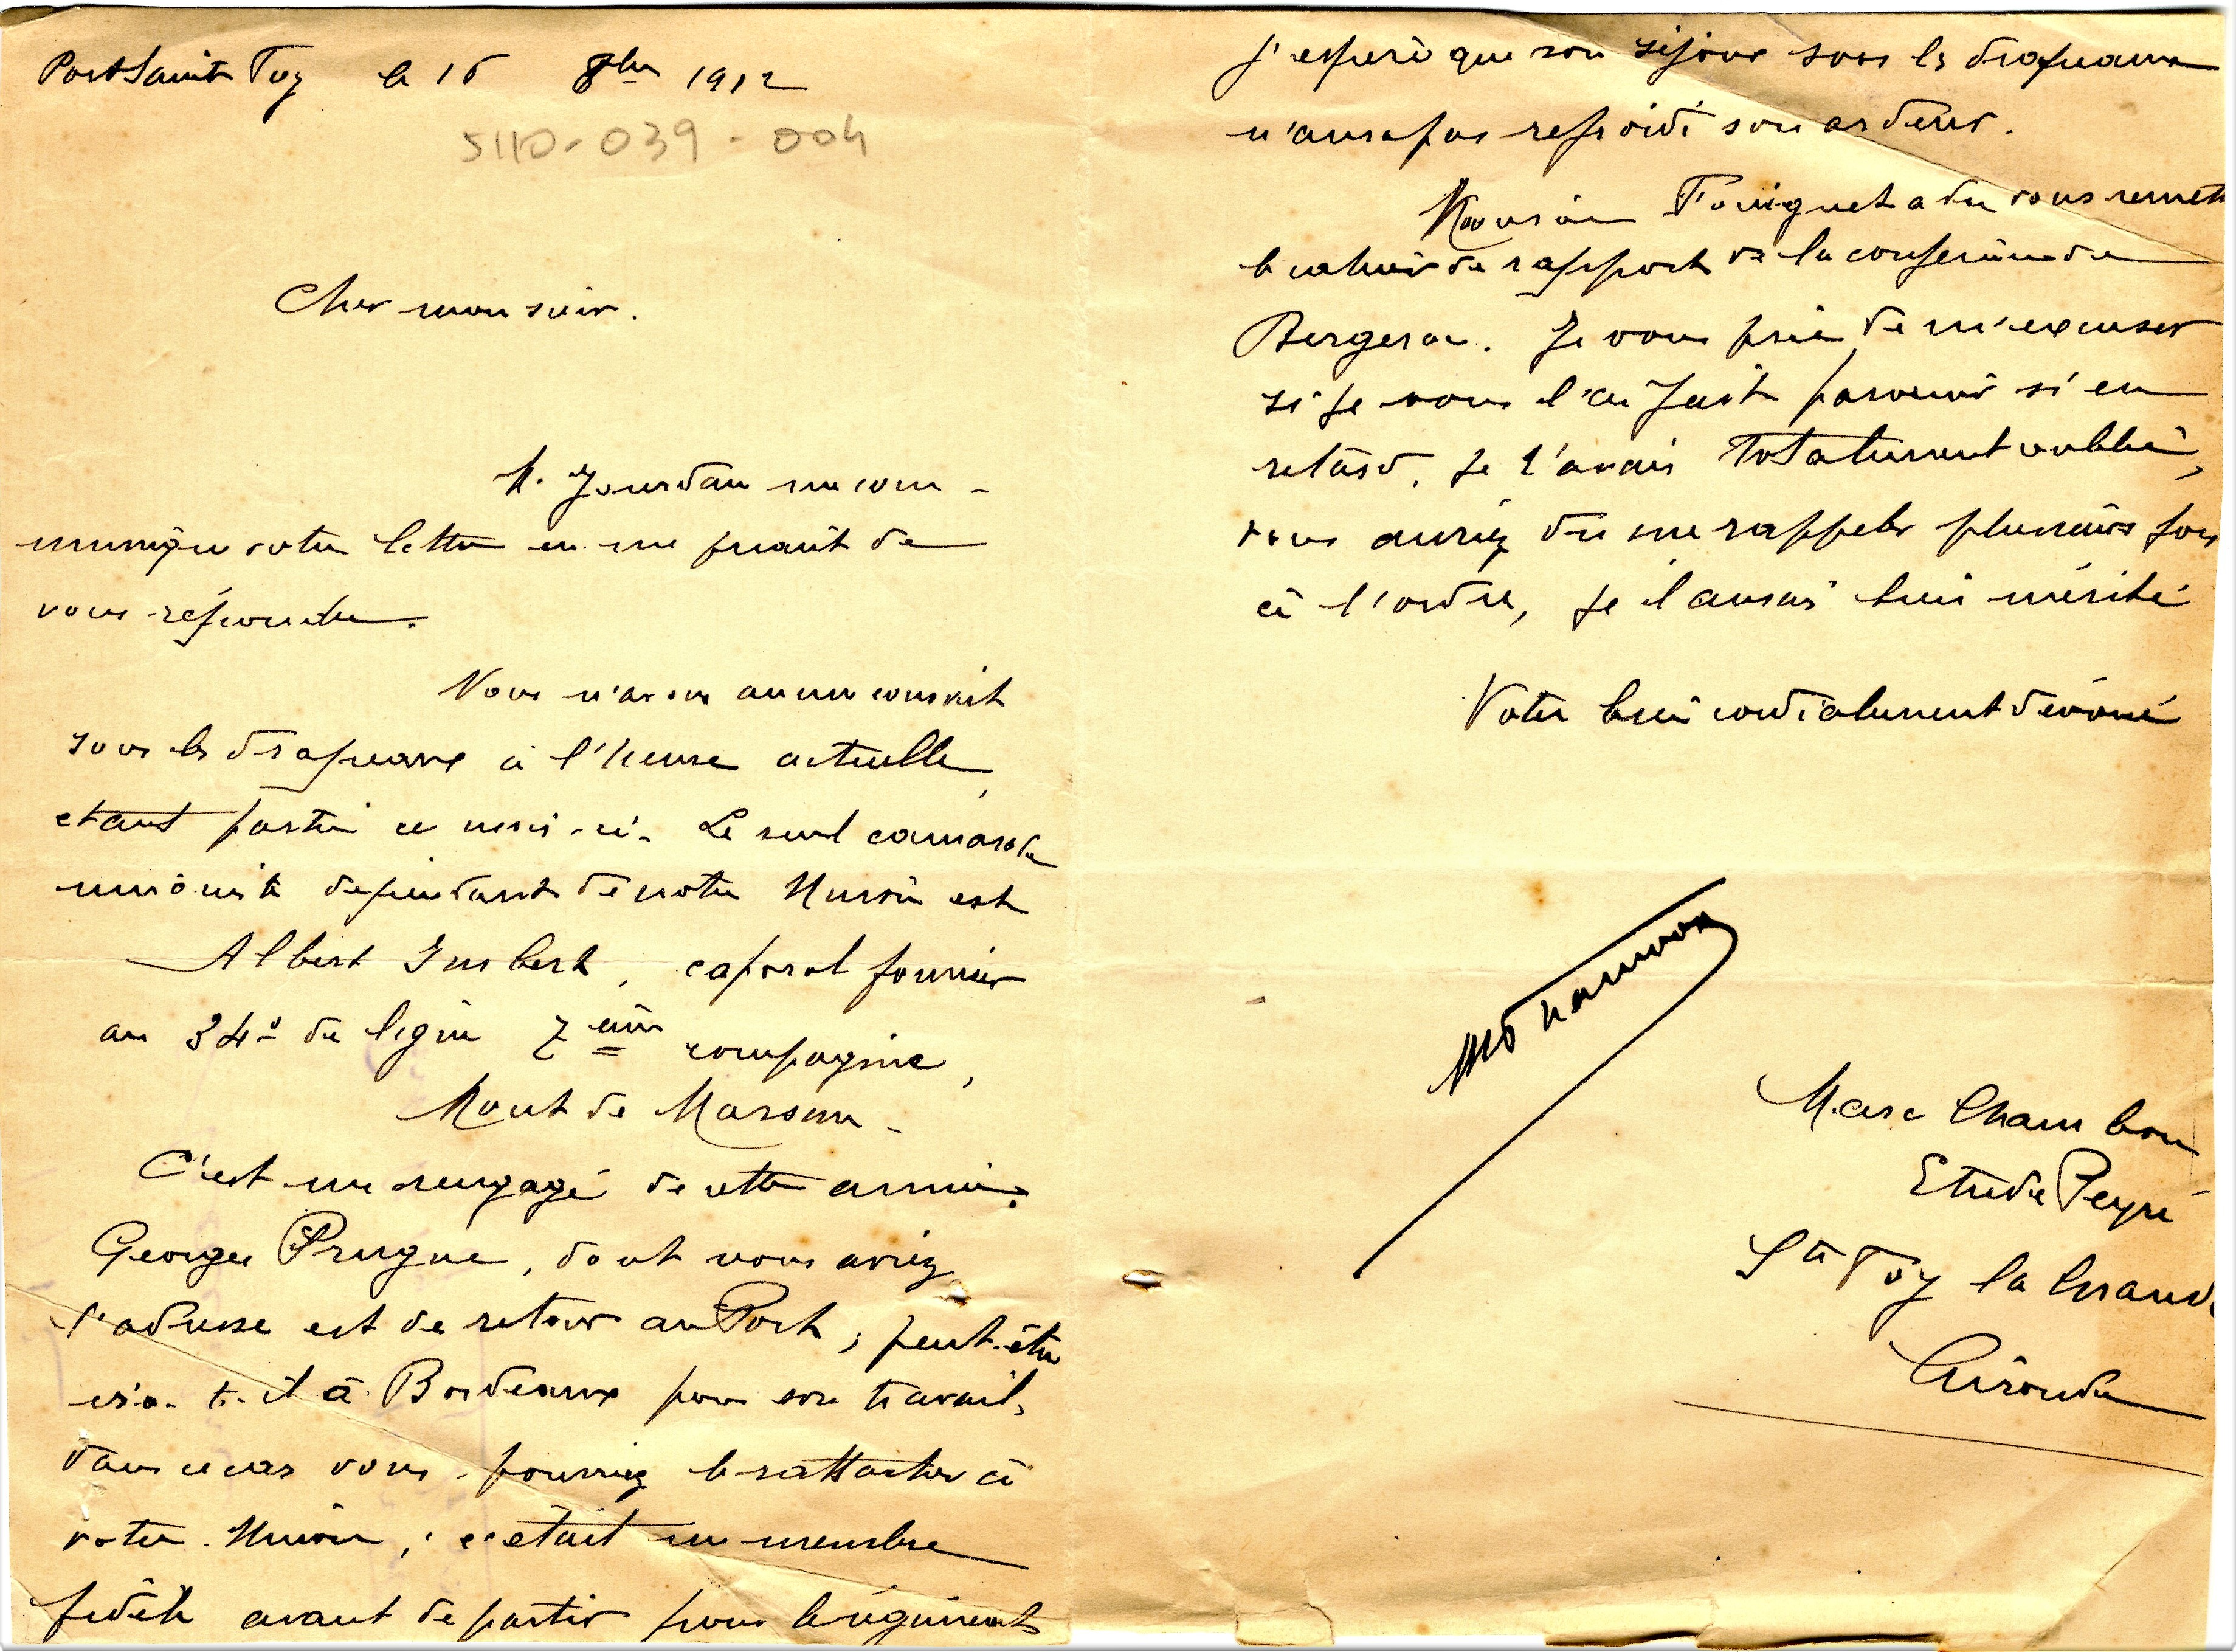 Port Sainte Foy le 16 8bre 1912
5HD-039-004
Cher monsieur.
M. Jourdan me com-
munique votre lettre en me priant de
vous répondre.
Nous n'avons aucun conscrit
sous les drapeaux à l'heure actuelle,
etant parti ce mois-ci. Le seul camarade
unioniste dependant de notre Union est
Albert Imbert, caporal fourrier
au 34e de ligne 7eme compagnie,
Mont de Marsan -
C'est un rengagé de cette année.
Georges Prugne, dont vous aviez
l'adresse est de retour au Port ; peut-être
ira-t-il à Bordeaux pour son travail,
dans ce cas vous pourriez le rattacher à
votre Union, ; c'était un membre
fidèle avant de partir pour le régiment
j'espère que son séjour sous les drapeaux
n'aura pas refroidi son ardeur.
a du vous remett
le cahier de rapport de la conference de
Bergerac. Je vous prie de m'excuser
si je vous l'ai fait parvenir si en
retard. Je l'avais totalement oublié,
vous auriez du me rappeler plusieurs fois
à l'ordre, je l'aurais bien mérité
Votre bien cordialement dévoué
Marc Chambon
Etude Peyré
Ste Foy la Grande
Gironde